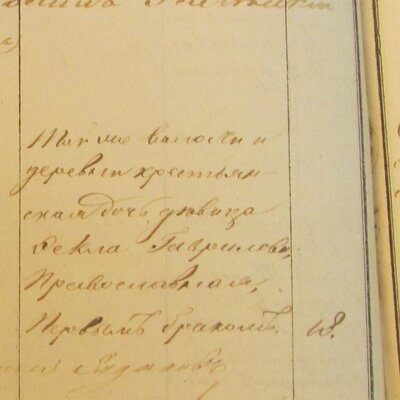 Той же волости и
деревни крестьян-
ская дочь девица
Фекла Гаврилова,
Православная,
Первымъ бракомъ. 18.